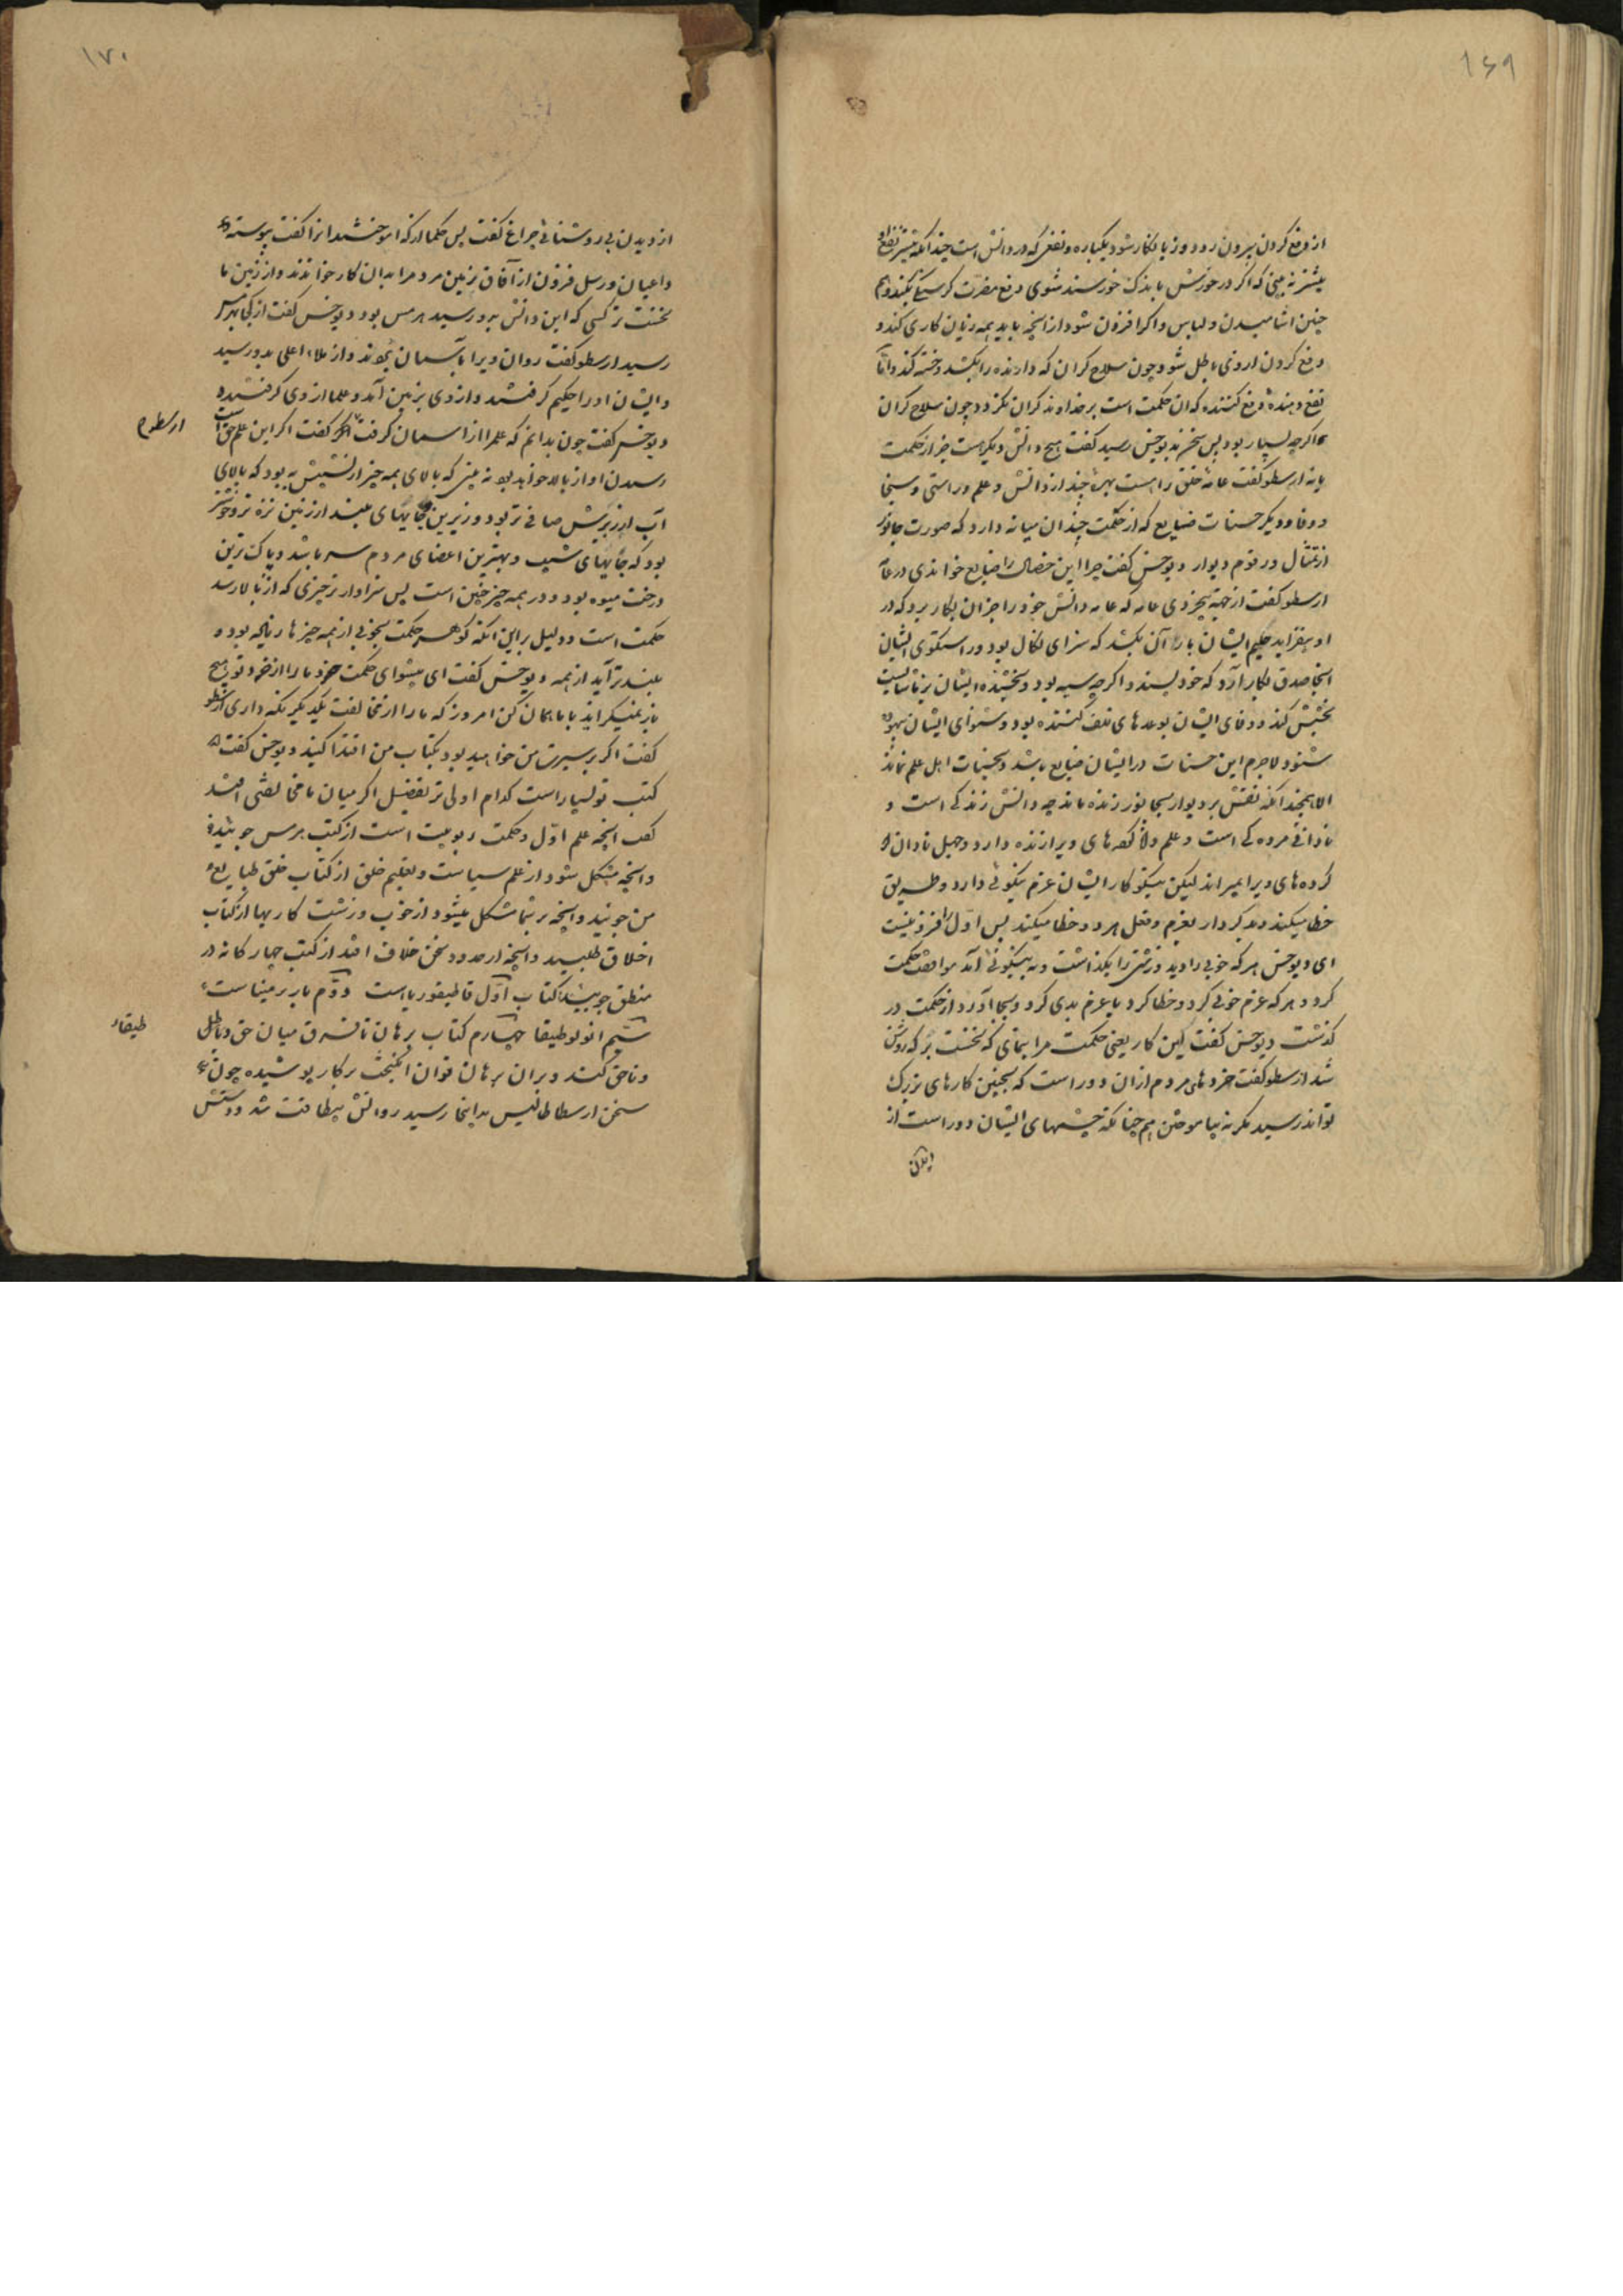 ۱۶۹
از دفع کردن بیرون رود و زیانکار شود یکباره و نفعی که در دانش است چندانکه بیشتر نفع او
بیشتر نه بینی که اگر در خورش باندک خورسند شوی دفع مضرت گرسنگی بکند و هم
چنین اشامیدن و لباس و اگر افزون شود از انچه باید همه زیان کاری کند و
دفع کردن از وی باطل شود چون سلاح گران که دارنده را بکشد و خسته کند و اما
نفع دهنده و دفع کننده که ان حکمت است بر خداوند گران نگردد چون سلاح گران
اگرچه بسیار بود پس سخن به دیوجنس رسید گفت هیچ دانش دیگر هست جز از حکمت
یا نه ارسطو گفت عامه خلق را هست بهره چند از دانش و علم و راستی و سخا
و وفا و دیگر حسنات ضایع که از حکمت چندان میانه دارد که صورت جانور
از تمثال و رقوم دیوار دیوجنس گفت چرا این خصال را ضایع خواندی در عامه
ارسطو گفت از جهة بیخردی عامه که عامه دانش خود را جز ان بکار برد که در
او بیفزاید حکیم ایشان باز آن بکشد که سزای نکال بود و راستگوی ایشان
انجا صدق بکار آرد که خود پسندد اگرچه سیه بود و بخشنده ایشان بر ناشایست
بخشش کند و وفای ایشان بوعدهای تلف کننده بود و شنوای ایشان بیهوده
شنود لاجرم این حسنات در ایشان ضایع باشد و بحسنات اهل علم نماند
الا بچندانکه نقش بر دیوار بجانور زنده ماند چه دانش زندگی است و
نادانی مرده‌گی است و علم دانا کرده‌های ویرا زنده دارد و جهل نادان
کرده‌های ویرا بمیراند لیکن نیکو کار ایشان عزم نیکوئی دارد و طریق
خطا میکند و بد کردار بعزم و فعل هر دو خطا میکند پس اول را فزونیست
ای دیوجنس هر که خوبی را دید و زشتی را بگذاشت و به نیکوئی آمد موافقت حکمت
کرد و هر که عزم خوبی کرد و خطا کرد یا عزم بدی کرد و بجا آورد از حکمت در
گذشت دیوجنس گفت این کار یعنی حکمت مرا بنمای که نخست بر که روشن
شد ارسطو گفت خردهای مردم ازان دور است که بچنین کارهای بزرگ
تواند رسید مگر نه بیاموختن هم چنانکه چشمهای ایشان دور است از
۱۷۰
از دیدن بی روشنائی چراغ گفت پس حکما از که اموختند انرا گفت پیوسته
داعیان و رسل قرون از آفاق زمین مردم را بدان کار خواندند و از زمین ما
نخست تر کسی که این دانش بدو رسید هرمس بود دیوجنس گفت از کجا بهرمس
رسید ارسطو گفت روان ویرا بآسمان بردند و از ملاء اعلی بدو رسید
و ایشان او را حکیم گرفتند و از وی بزمین آمد و علما از وی گرفتند
دیوجنس گفت چون بدانم که علم را از اسمان گرفت گفت اگر این علم حق است
ارسطو
رسیدن او از بالا خواهد بود نه بینی که بالای همه چیز از نشیبش به بود که بالای
آب از زیرش صافی تر بود و زیرین جایهای بلند از زمین نزه تر و خوشتر
بود که جایهای شیب و بهترین اعضای مردم سر باشد و پاک ترین
درخت میوه بود و در همه چیز چنین است پس سزاوار تر چیزی که از بالا رسد
حکمت است و دلیل براین انکه گوهر حکمت بخوبی از همه چیزها رباینده بود و
بلندتر آید از همه دیوجنس گفت ای پیشوای حکمت خرد ما را از خرد تو هیچ
باز نمیگراید با ما همان کن امروز که ما را از مخالفت یکدیگر نگه داری ارسطو
گفت اگر بر سیرت من خواهید بود بکتاب من اقتدا کنید دیوجنس گفت
کتب تو بسیار است کدام اولی تر بفصل اگر میان ما مخالفتی افتد
گفت انچه علم اول و حکمت ربوبیت است از کتب هرمس جوئید
و انچه مشکل شود از علم سیاست و تعلیم خلق از کتاب خلق طبایع
من جوئید و انچه بر شما مشکل میشود از خوب و زشت کارها از کتاب
اخلاق طلبید و انچه از حدود سخن خلاف افتد از کتب چهارگانه در
منطق جوئید کتاب اول قاطیغوریاست دوم باربرمیناست
سیم انولوطیقا چهارم کتاب برهان تا فرق میان حق و باطل
طیقا
و ناحق کند و بران برهان توان انگیخت بر کار پوشیده چون
سخن ارسطاطالیس بداینجا رسید روانش بیطاقت شد و دستش